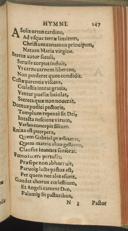 HYMNI. 147
A Solis ortus cardine,
Ad usque terræ limitem,
Christum canamus principem,
Natum Maria Virgine.
Beatus auctor sæculi,
Servile corpus induit,
Ut carne carnem liberans,
Non perderet quos condidit.
Castæ parentis viscera,
Cælestis intrat gratia,
Venter puellæ baiulat,
Secreta quæ non noverat.
Domus pudici pectoris,
Templum repente fit Dei,
Intacta nesciens virum,
Verbo concepit filium.
Enixa est puerpera,
Quem Gabriel prædixerat,
Quem matris alvo gestiens,
Clausus Ioannes senserat.
Fœno iacere pertulit,
Præsepe non abhorruit,
Parvoque lacte pastus est,
Per quem nec ales esurit.
Gaudet chorus cælestium,
Et Angeli canunt Deo,
Palamque fit pastoribus,
N 2 Pastor